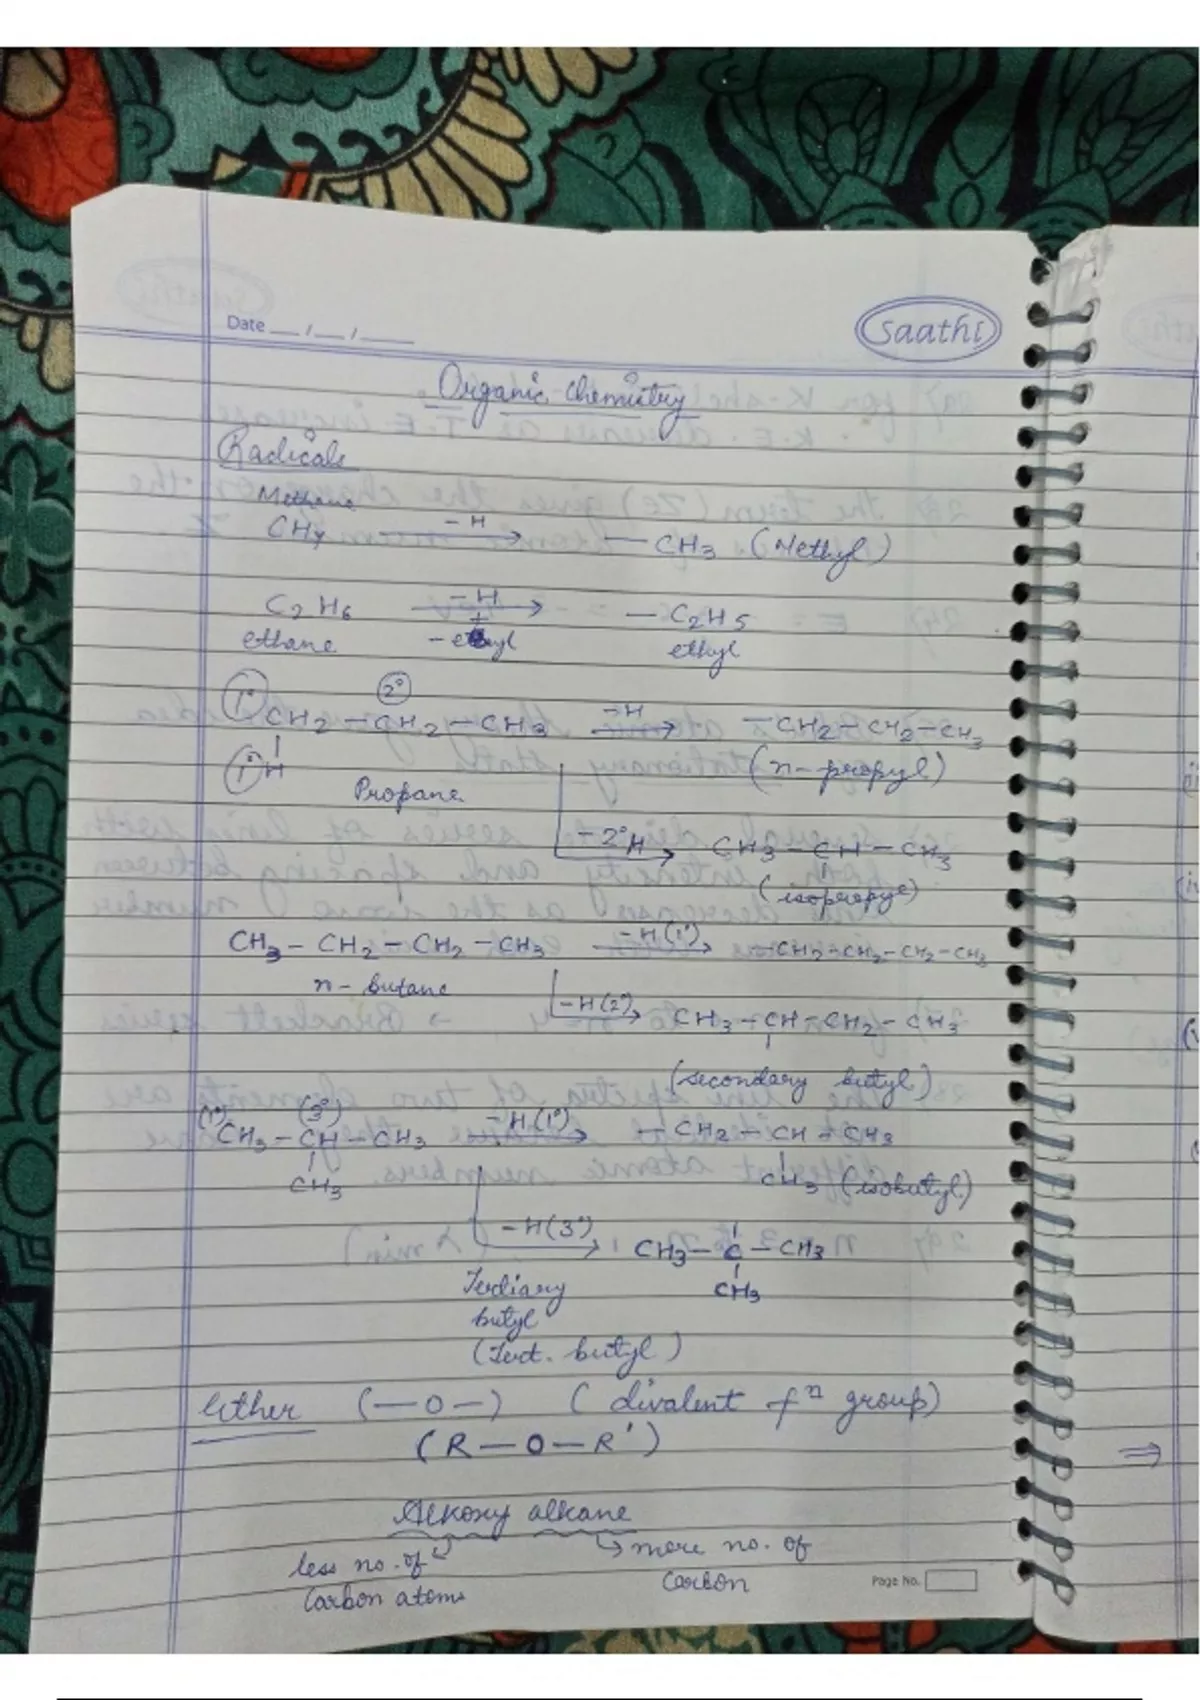 Date __/__/____
Saathi
Organic Chemistry
Radicals
Methane
CH4 —-H→ — CH3 (Methyl)
C2H6 —-H→ — C2H5
ethane ethyl
1° 2°
CH2 — CH2 — CH3 —-H→ — CH2 — CH2 — CH3
1° H (n-propyl)
Propane
-2°H→ CH3 — CH — CH3
(isopropyl)
CH3 — CH2 — CH2 — CH3 —-H(1°)→ — CH2 — CH2 — CH2 — CH3
n-butane
-H(2°)→ CH3 — CH — CH2 — CH3
(secondary butyl)
(1°) (3°)
CH3 — CH — CH3 —-H(1°)→ — CH2 — CH — CH3
CH3 CH3 (isobutyl)
-H(3°)→ CH3 — C — CH3
Tertiary CH3
butyl
(Tert. butyl)
Ether (—O—) (divalent fⁿ group)
(R — O — R')
Alkoxy alkane
less no. of more no. of
Carbon atoms Carbon
Page No.